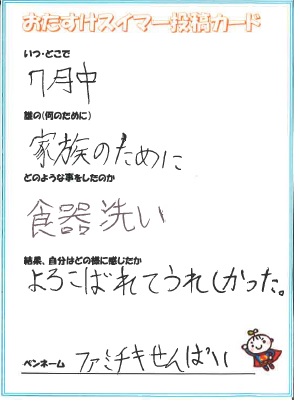 おたすけスイマー投稿カード
いつ・どこで
7月中
誰の(何のために)
家族のために
どのような事をしたのか
食器洗い
結果、自分はどの様に感じたか
よろこばれてうれしかった。
ペンネーム ファミチキせんぱい